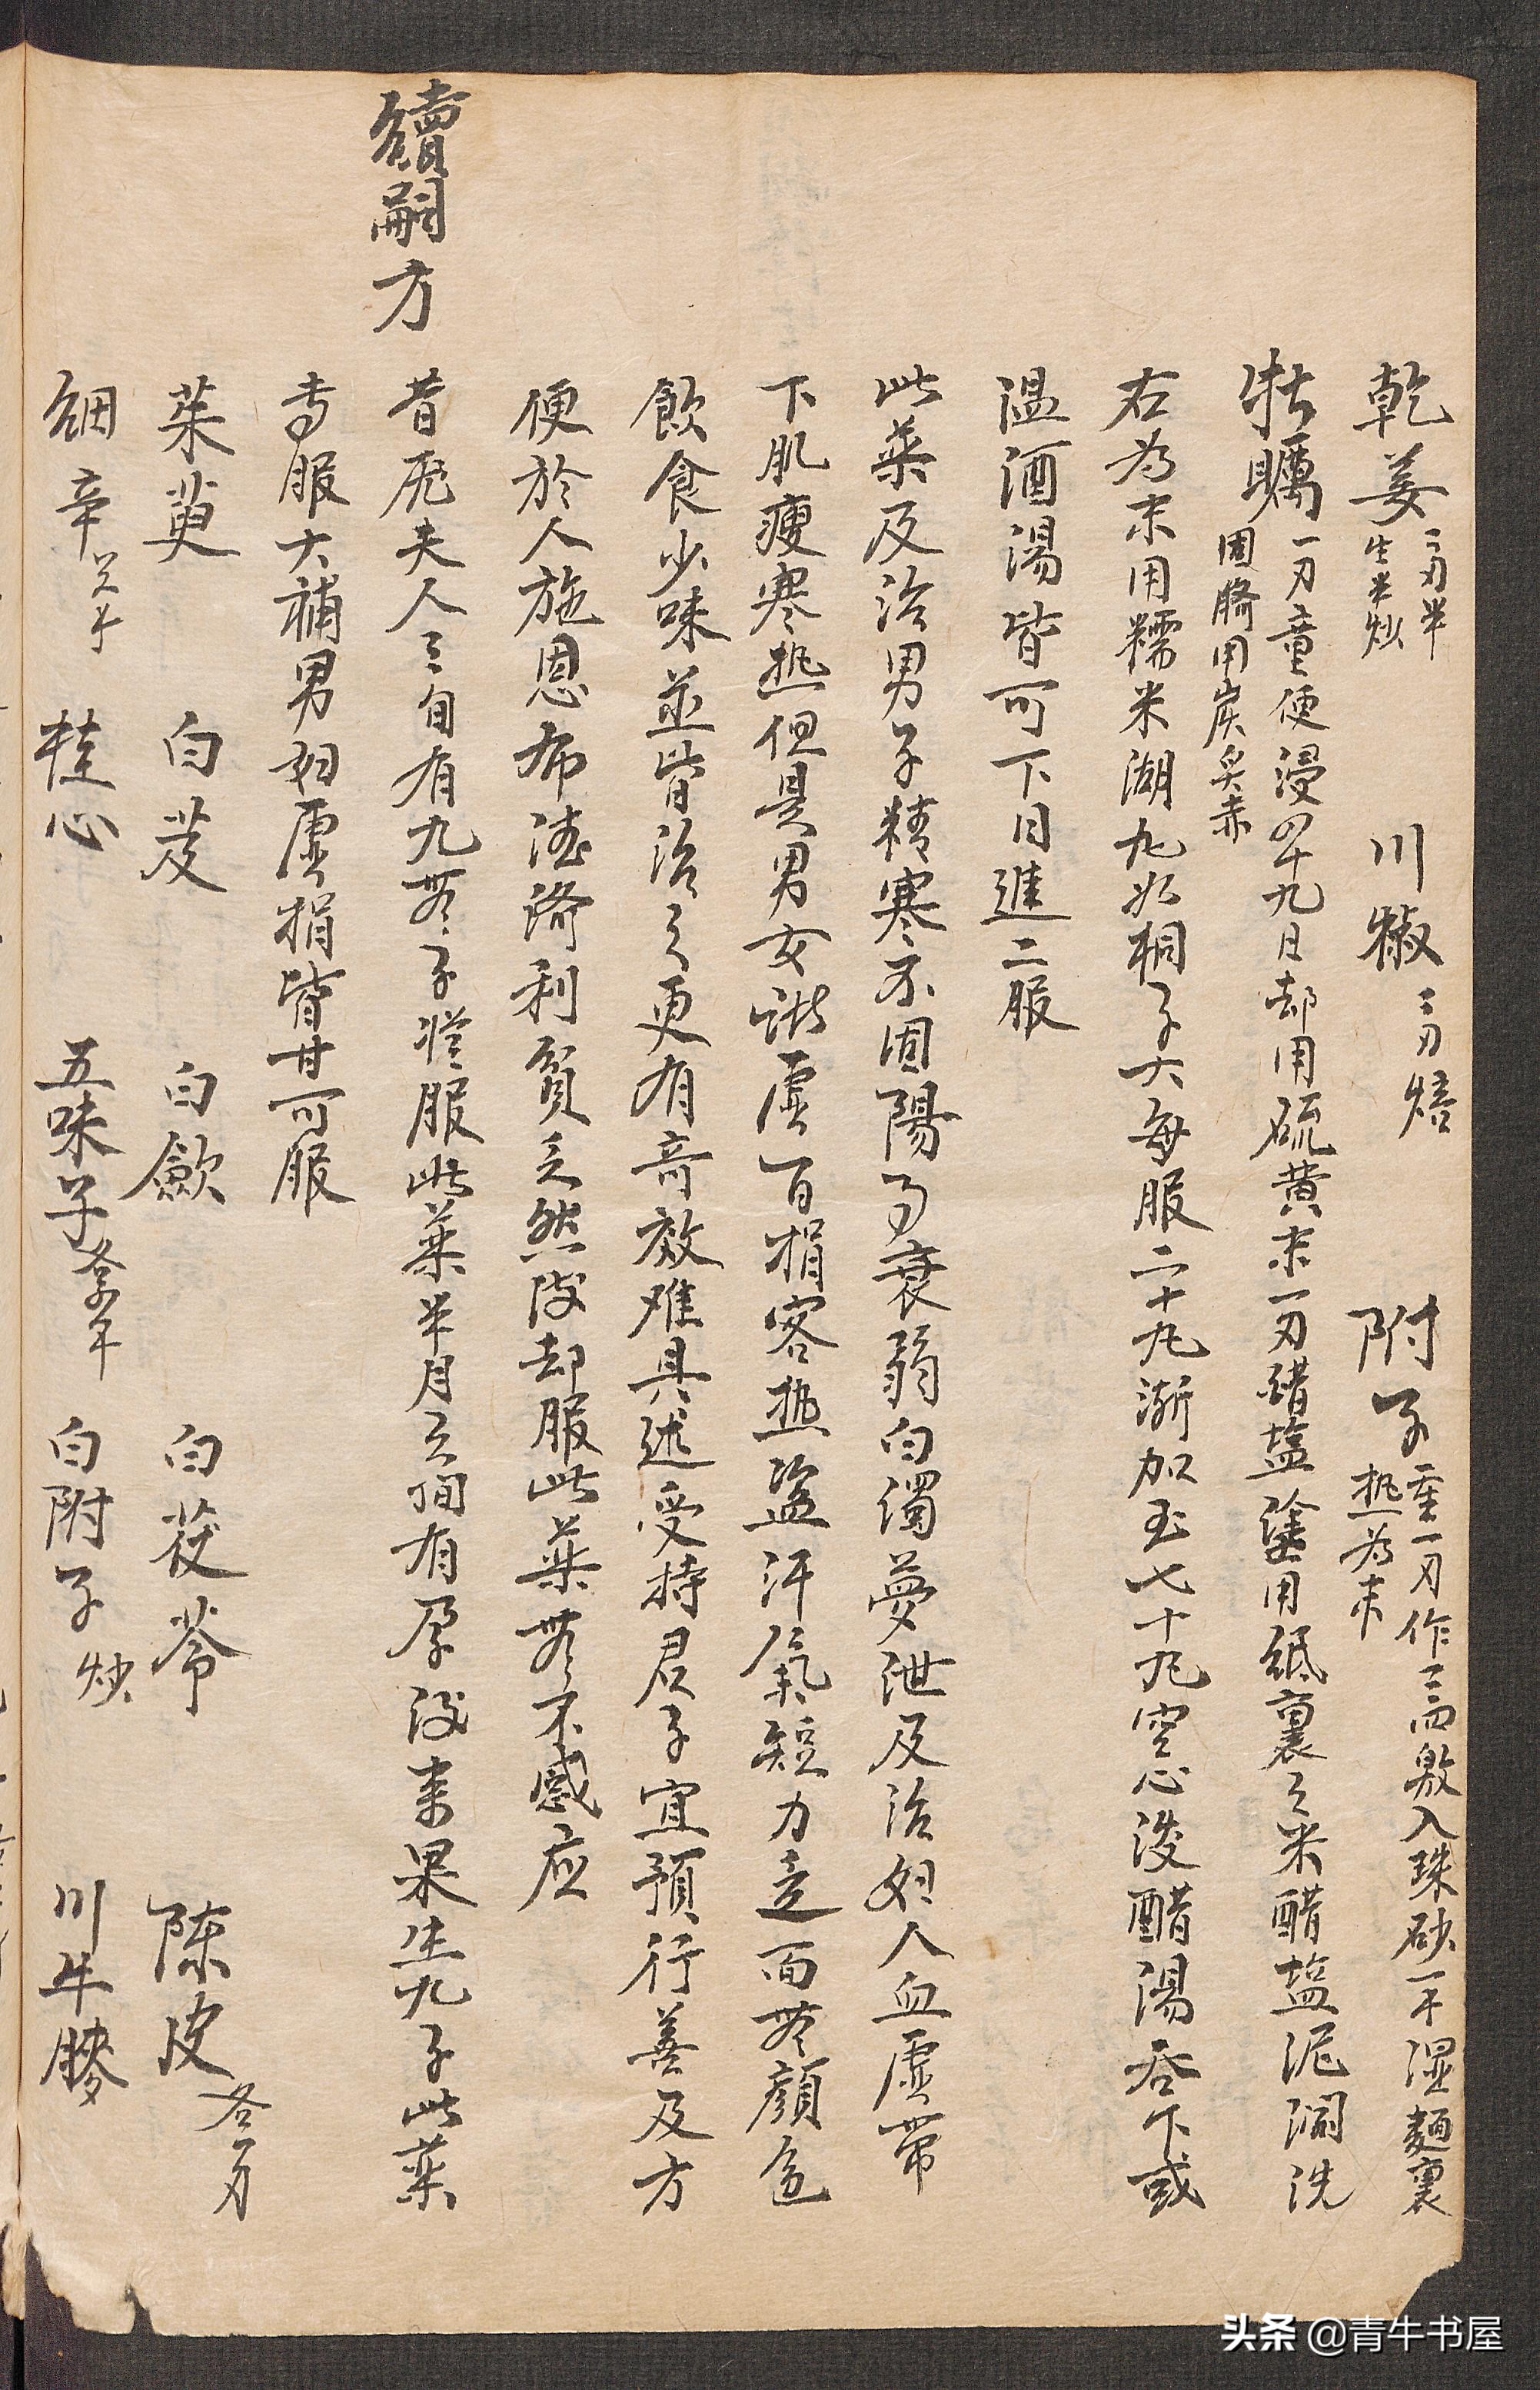 乾姜二两半生半炒 川椒二两焙 附子重一两作三四𫿞入珠砂一千湿麺裹热為末
牡蠣一两童便浸四十九日却用硫黄末一两醋塩塗用紙裹之米醋塩泥涸洗固臍用炭炙赤
右為末用糯米湖丸如桐子大每服二十丸漸加至七十丸空心淡醋湯吞下或
温酒湯皆可下日進二服
此薬及治男子精寒不固陽事衰弱白濁夢泄及治妇人血虚带
下肌瘦寒热但是男女諸虚百損客热盗汗氣短力乏面無顔色
飲食少味並皆治之更有竒效难具述受持君子宜預行善及方
便於人施恩布德済利貧乏然後却服此薬無不感应
續嗣方
昔庞夫人三旬有九無子將服此薬半月之间有孕後来果生九子此薬
専服大補男妇虚損皆甘可服
茱萸 白芨 白歛 白茯苓 陳皮各一两
细辛 桂心 五味子 白附子炒 川牛膝
头条 @青牛书屋